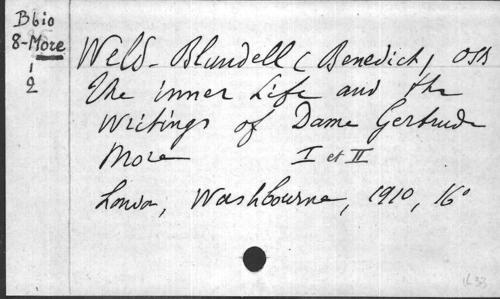 Bbio
8-More
1
2
Weld-Blundell (Benedict) OSB
The inner Life and the
writings of Dame Gertrude
More I et II
London, Washbourne, 1910, 16°